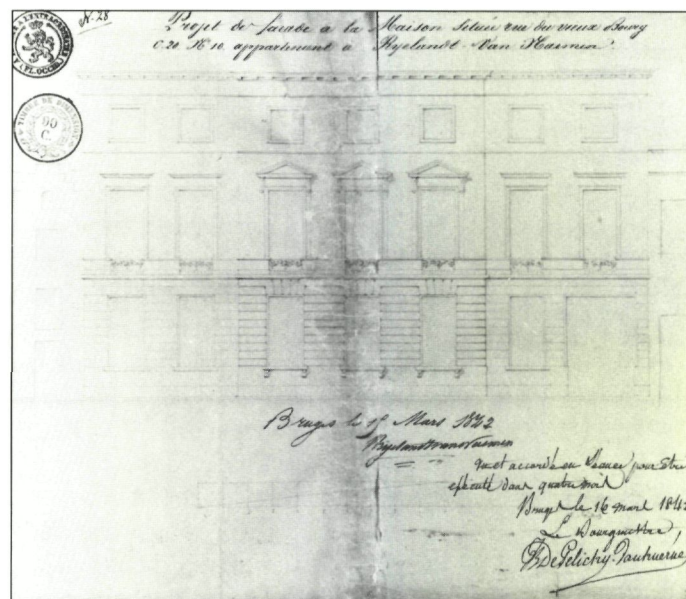 N. 28
Projet de facade a la Maison Située rue du vieux Bourg
C.20 N° 10 appartenant a Rijelandt-Van Nasmen
TIMBRE DE DIMENSION
90
C.
Bruges le 15 Mars 1842
Rijelandt van Nasmen
Vu et accordé en séance pour être
exécuté dans quatre mois
Bruges le 16 mars 1842
Le Bourgmestre,
De Pelichy-Vanhuerne